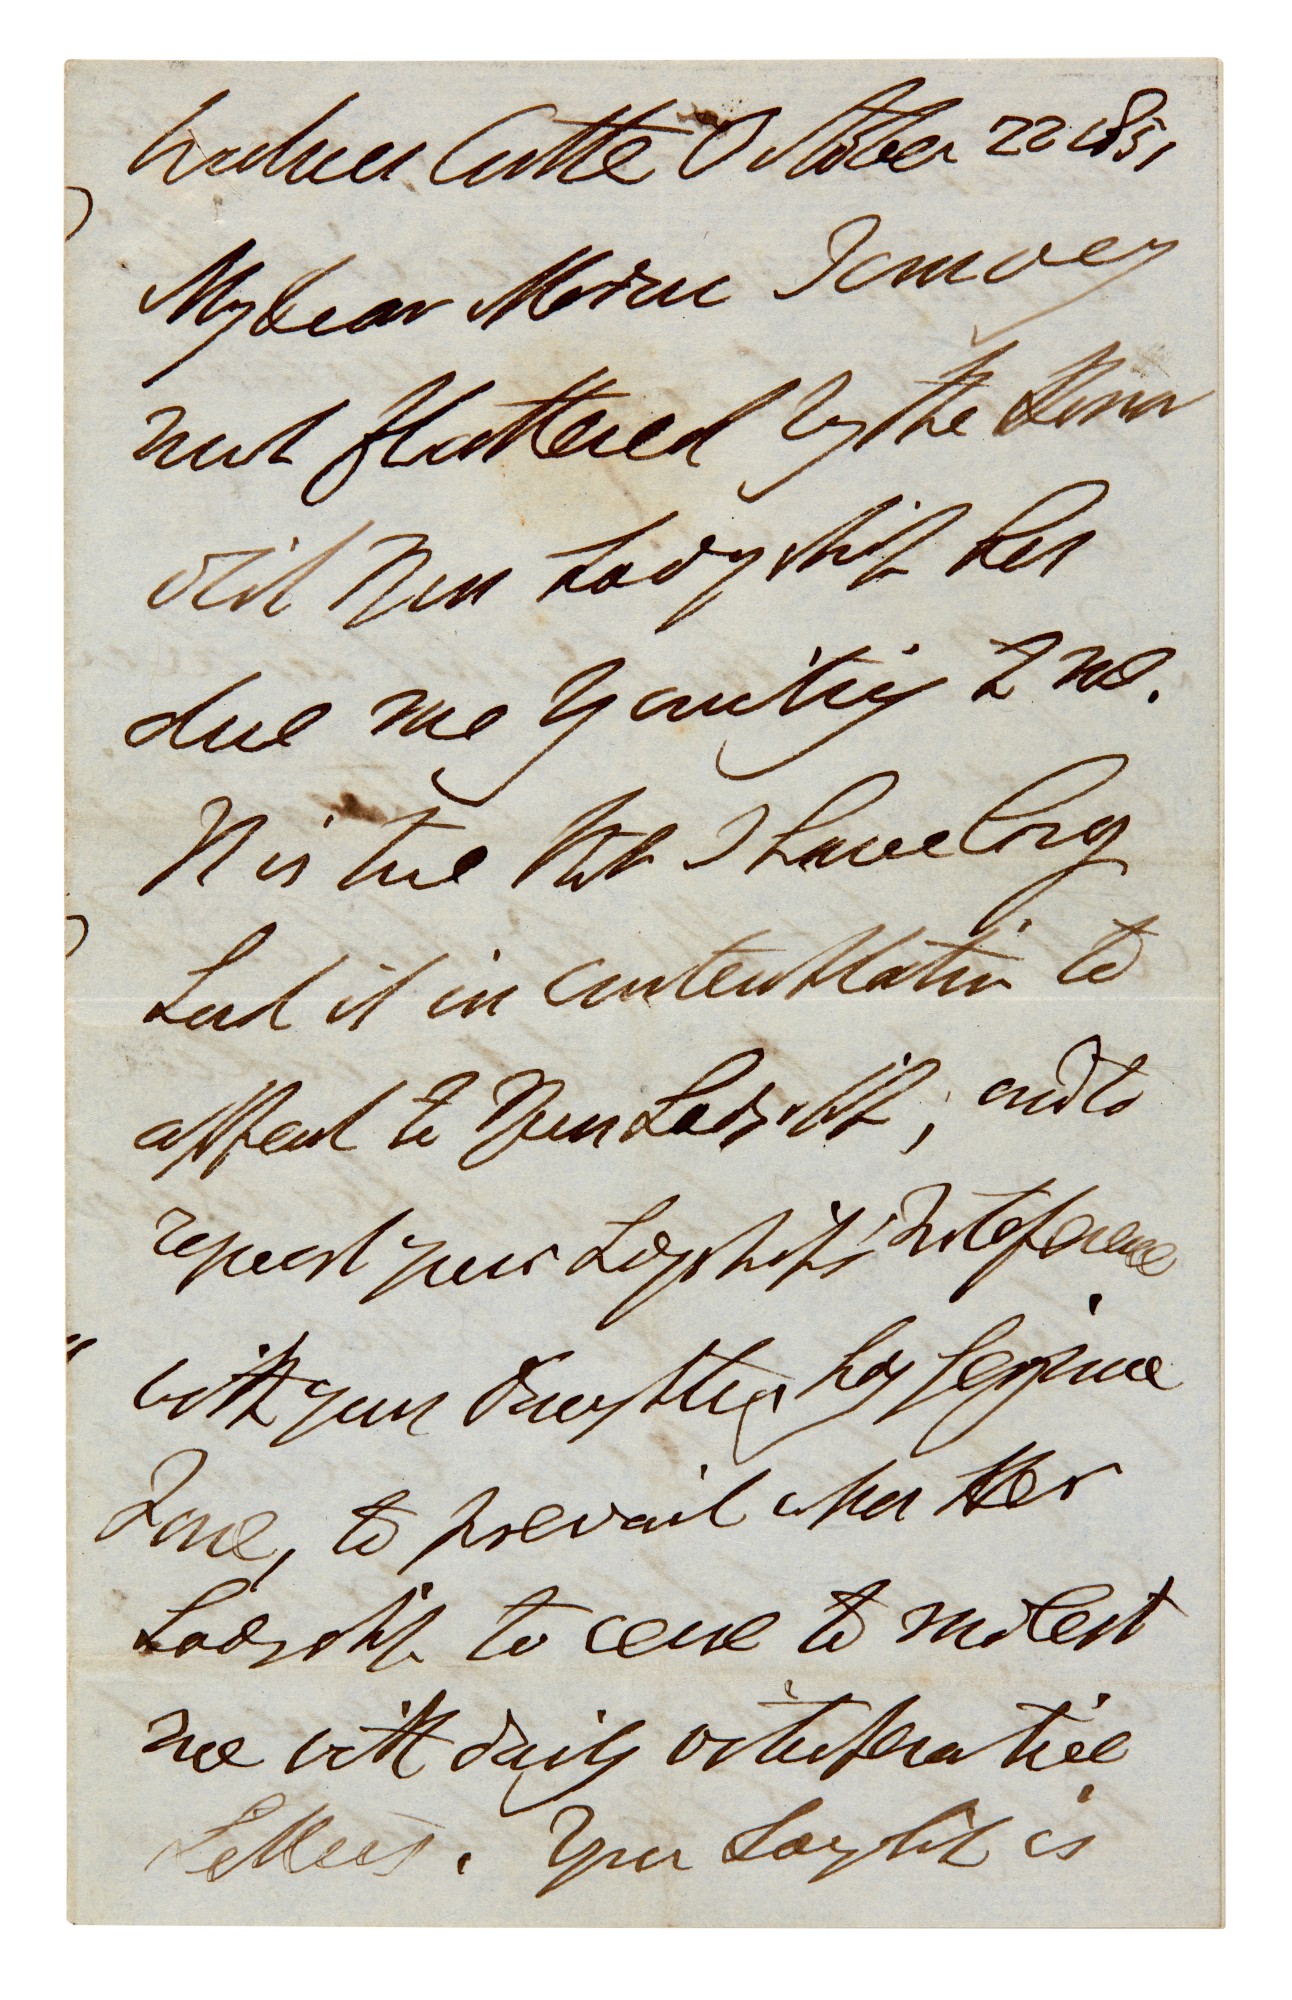 Walmer Castle October 22 1851
My dear Madam I am very
much flattered by the Honor
which Your Ladyship has
done me by writing to me.
It is true that I have long
had it in contemplation to
appeal to Your Ladyship, and to
request your Ladyship's Interference
with your Daughter Lady Georgiana
Fane, to prevail upon Her
Ladyship to cease to molest
me with daily vituperative
Letters. Your Ladyship is